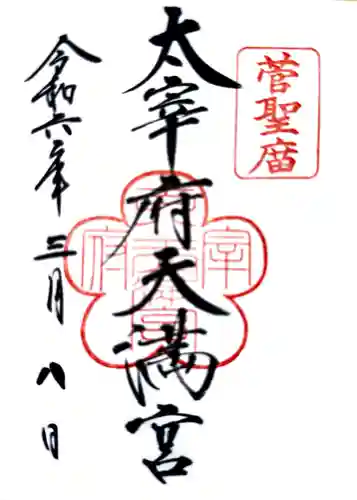 菅聖廟
太宰府天満宮
令和六年三月八日